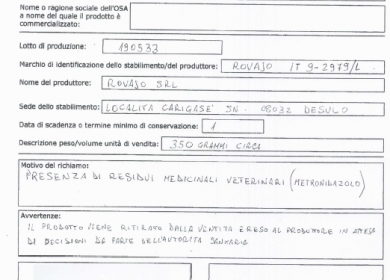 Nome o ragione sociale dell'OSA
a nome del quale il prodotto è
commercializzato:
Lotto di produzione: 190533
Marchio di identificazione dello stabilimento/del produttore: ROVAJO IT 9-2979/L
Nome del produttore: ROVAJO SRL
Sede dello stabilimento: LOCALITÀ CARIGASE' SN. 08032 DESULO
Data di scadenza o termine minimo di conservazione: 1
Descrizione peso/volume unità di vendita: 350 GRAMMI CIRCA
Motivo del richiamo:
PRESENZA DI RESIDUI MEDICINALI VETERINARI (METRONIDAZOLO)
Avvertenze:
IL PRODOTTO VIENE RITIRATO DALLA VENDITA E RESO AL PRODUTTORE IN ATTESA
DI DECISIONI DA PARTE DELL'AUTORITÀ SANITARIA